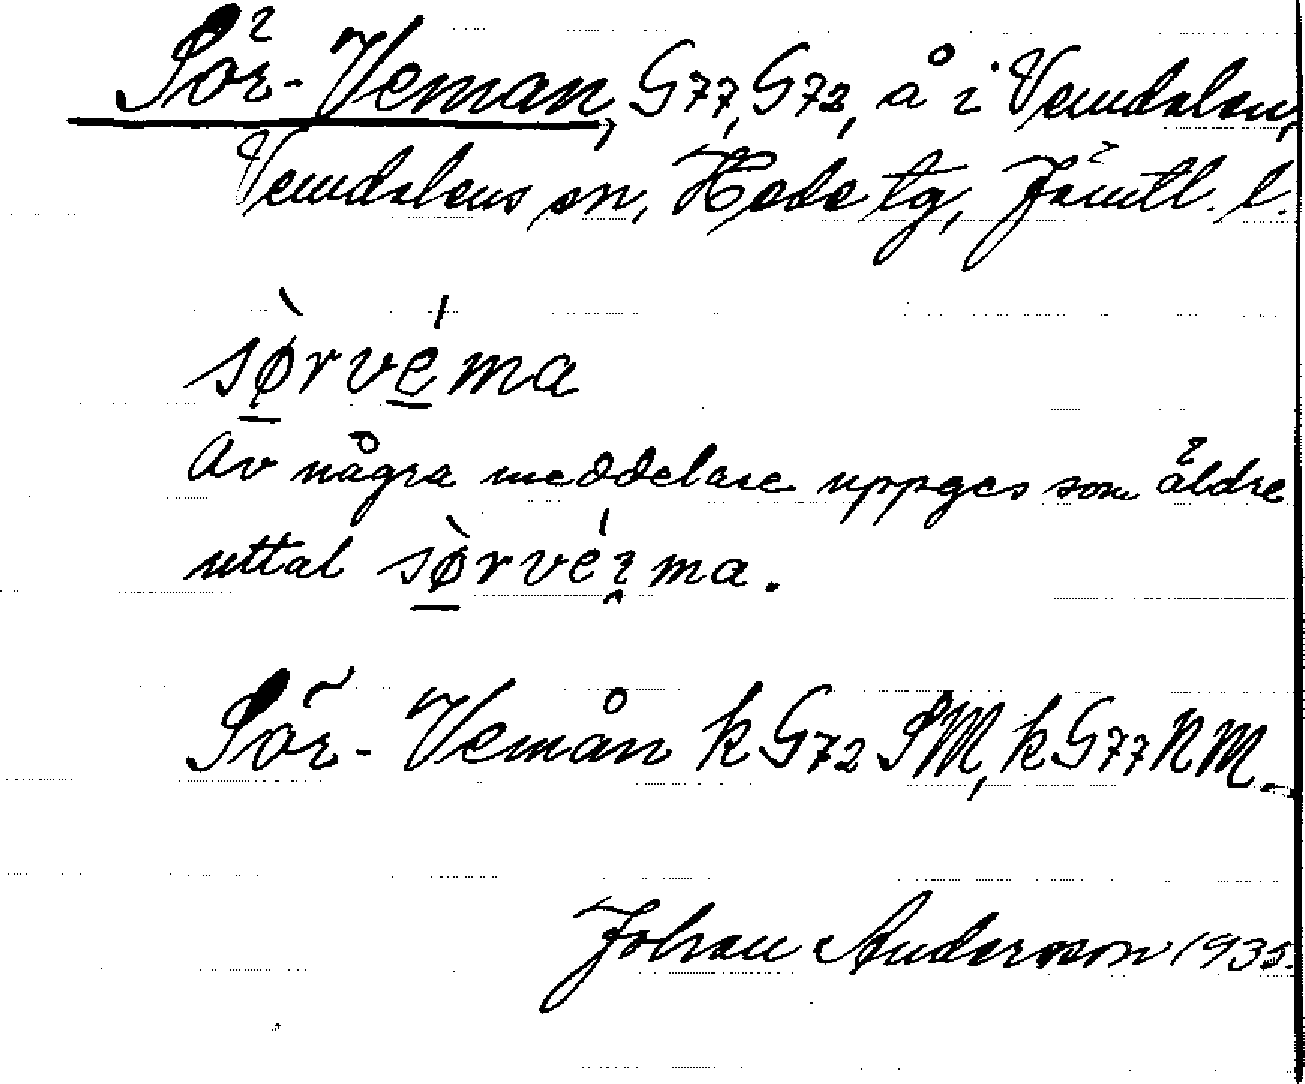 Sör-Veman, G77, G72, å i Vemdalen,
Vemdalens sn, Hede tg, Jämtl. l.
sø̱̀rvé̱ma
Av några meddelare uppges som äldre
uttal sø̱̀rvéi̯ma.
Sör-Vemån k G72 SM, k G77 NM.
Johan Anderson 1935.